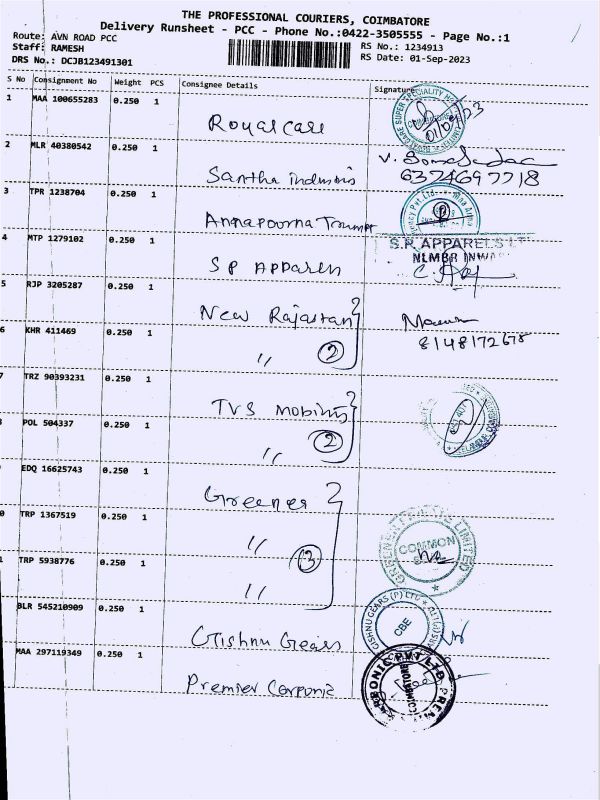 THE PROFESSIONAL COURIERS, COIMBATORE
Delivery Runsheet - PCC - Phone No.:0422-3505555 - Page No.:1
Route: AVN ROAD PCC
Staff: RAMESH
DRS No.: DCJB123491301
RS No.: 1234913
RS Date: 01-Sep-2023
S No Consignment No Weight PCS Consignee Details Signature
1 MAA 100655283 0.250 1
Royalcare
01/09/23
2 MLR 40380542 0.250 1
Santha industris
6374697718
3 TPR 1238704 0.250 1
Annapoorna
4 MTP 1279102 0.250 1
S P Apparels
S.P. APPARELS
5 RJP 3205287 0.250 1
New Rajastan
8148172675
6 KHR 411469 0.250 1
〃 2
7 TRZ 90393231 0.250 1
TVS Mobility
POL 504337 0.250 1
〃 2
EDQ 16625743 0.250 1
Greenes
0 TRP 1367519 0.250 1
〃 3
TRP 5938776 0.250 1
〃
COMMON
BLR 545210909 0.250 1
Gishnu Gears
GISHNU GEARS (P) LTD
CBE
MAA 297119349 0.250 1
Premier